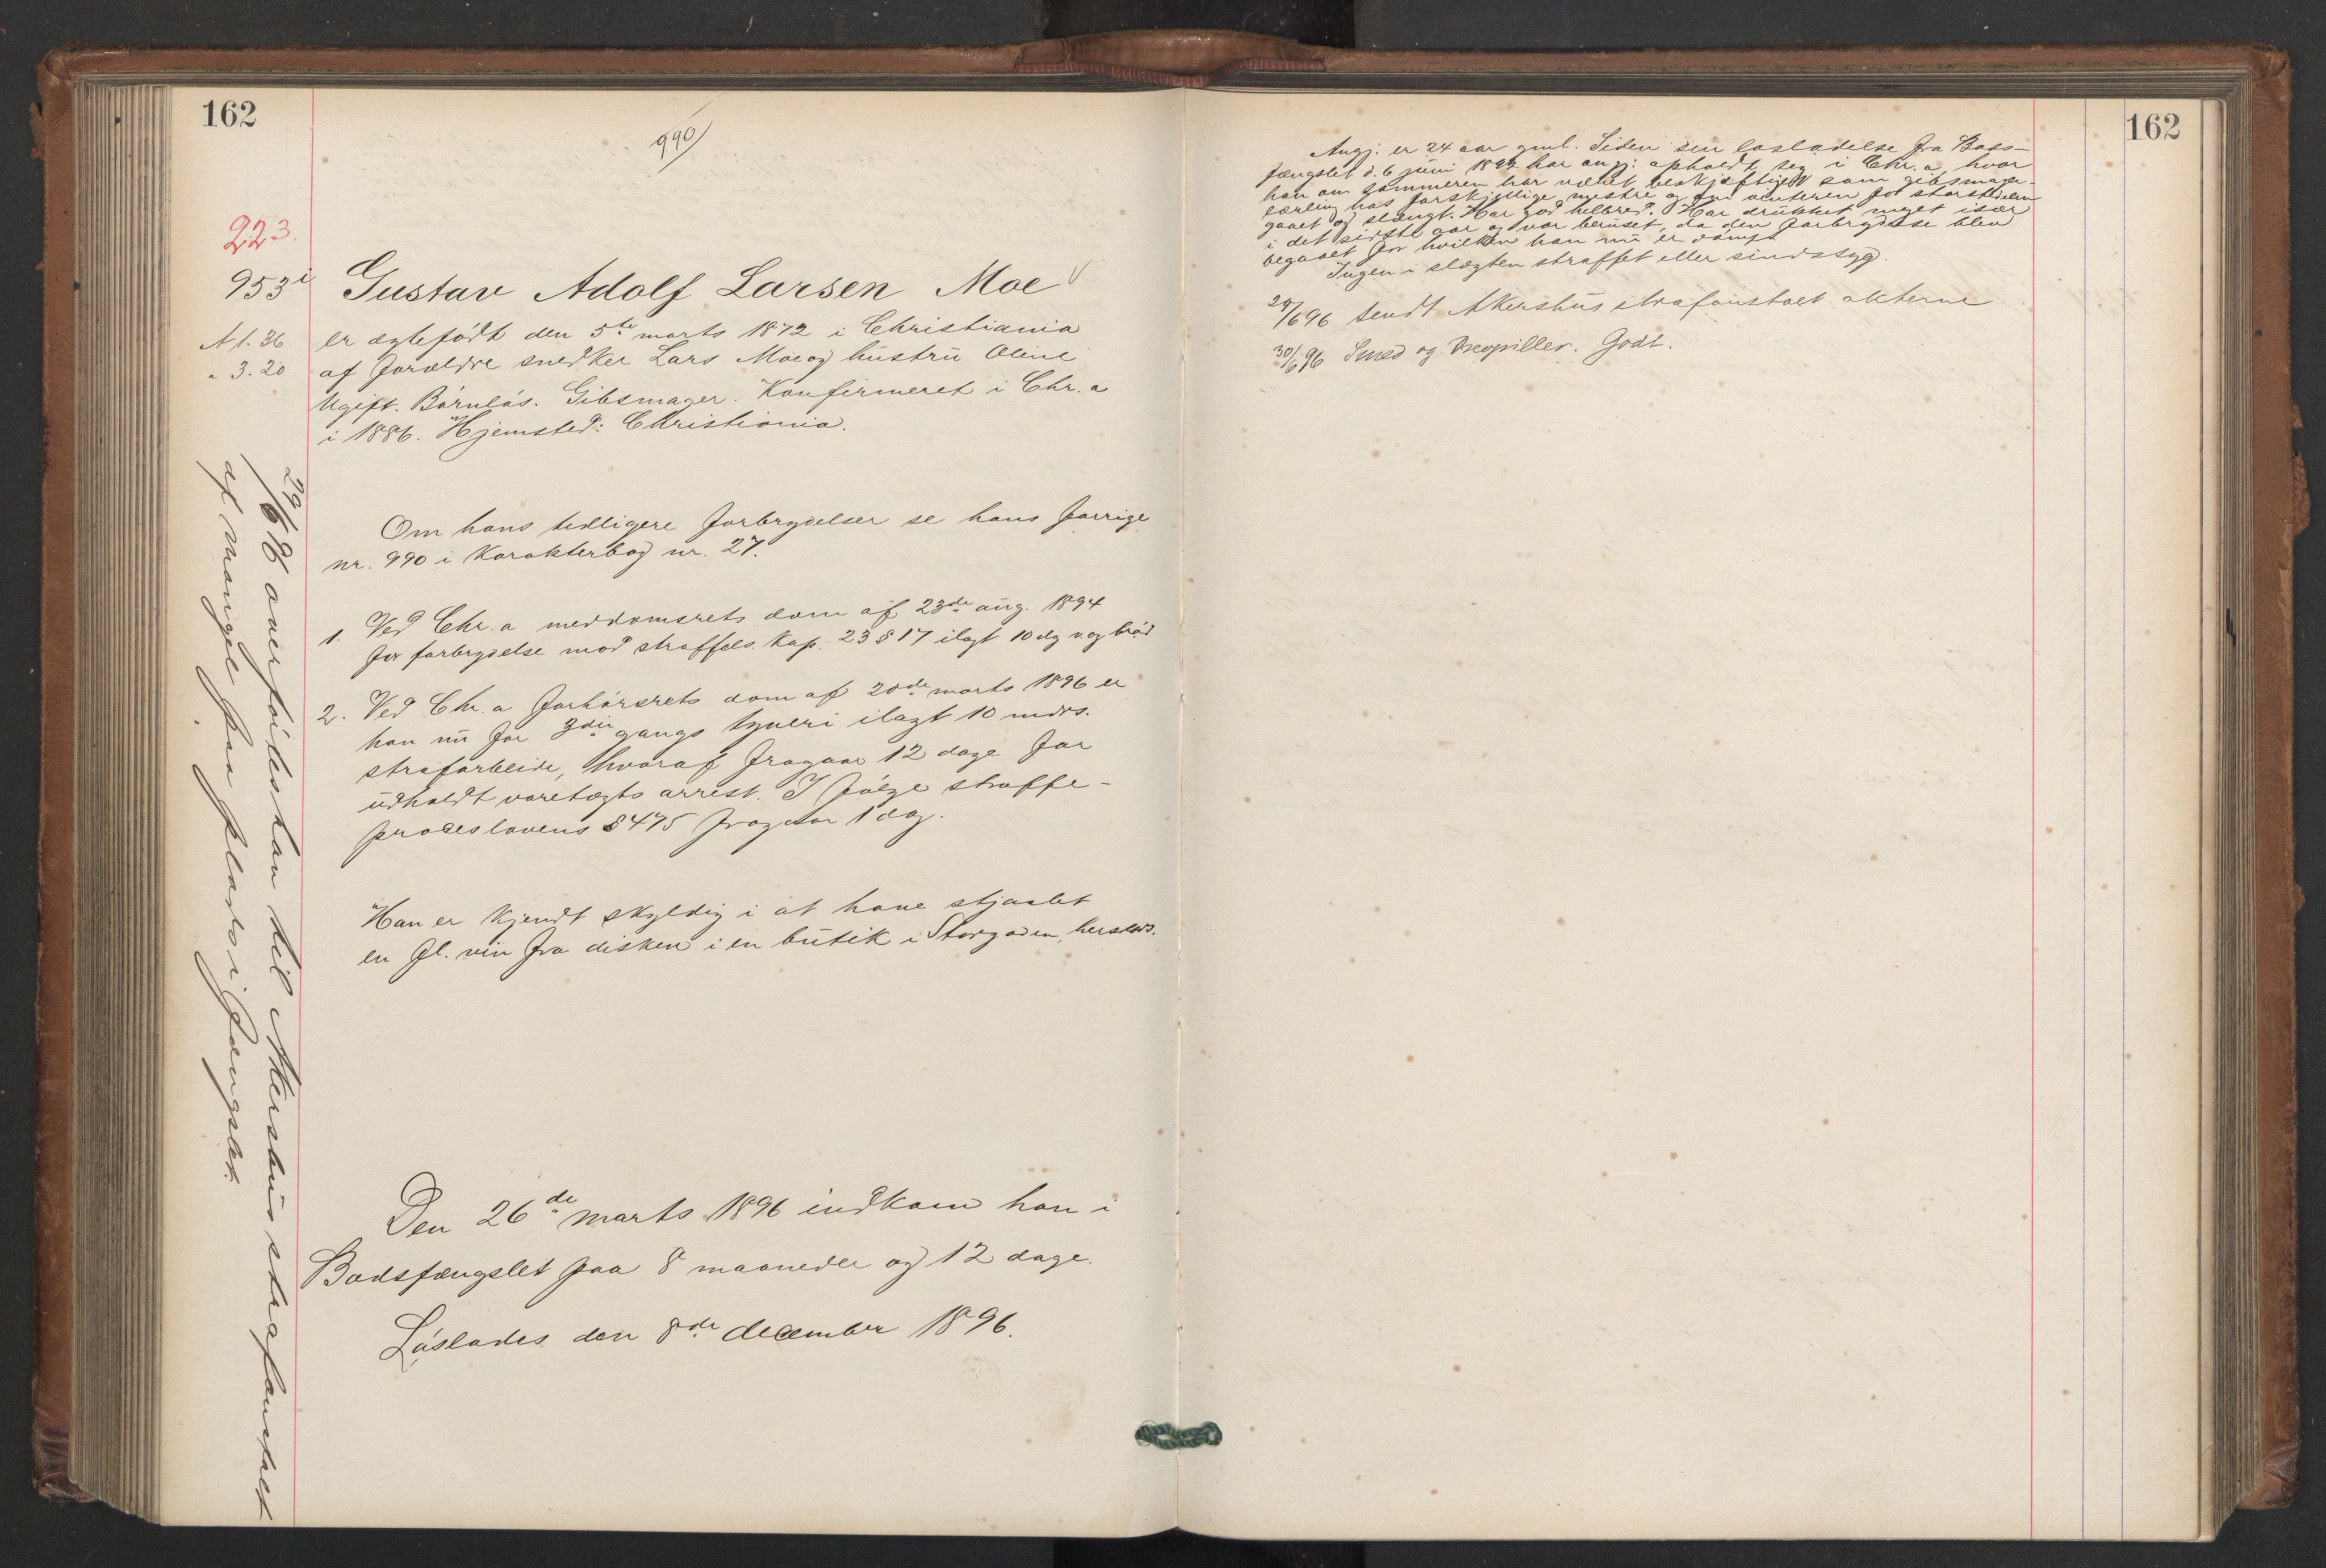 162
990)
223.
953 Gustav Adolf Larsen Moe
A 1.36 er ægtefödt den 5te marts 1872 i Christiania
" 3.20 af forældre snedker Lars Moe og hustru Oline
Ugift. Börnlös. Gibsmager. Konfirmeret i Chr.a
i 1886. Hjemsted: Christiania.
Om hans tidligere forbrydelser se hans forrige
nr. 990 i Karakterbog nr. 27.
1. Ved Chr.a meddomsrets dom af 23de aug. 1894
for forbrydelse mod straffels. Kap. 23 § 17 ilagt 10 dg v og bröd
2. Ved Chr.a forhörsrets dom af 20de marts 1896 er
han nu for 3die gangs tyveri ilagt 10 mdrs.
strafarbeide, hvoraf fragaar 12 dage for
udholdt varetægts arrest. I fölge straffe-
proceslovens § 475 fragaar 1 dag.
Han er kjendt skyldig i at have stjaalet
en fl. vin fra disken i en butik i Storgaden, hersteds.
Den 26de marts 1896 indkom han i
Bodsfængslet paa 8 maaneder og 12 dage.
Löslades den 8de december 1896.
29/6 96 overförtes han til Akershus strafanstalt
af mangel paa plads i fængslet.
162
Angj. er 24 aar gml. Siden sin losladelse fra Bods-
fængslet d. 6 juni har angj. opholdt seg i Chr.a, hvor
han om sommeren har været beskjæftiget som gibsmager-
lærling hos forskjellige mestre og om vinteren for störstedelen
gaaet og slængt. Har god helbred. Har drukket meget især
i det sidste aar og var beruset, da den forbrydelse blev
begaaet for hvilken han nu er dömt.
Ingen i slægten straffet eller sindssyg.
29/6 96 sendt Akershus strafanstalt akterne
30/6 96 Smed og Godt.